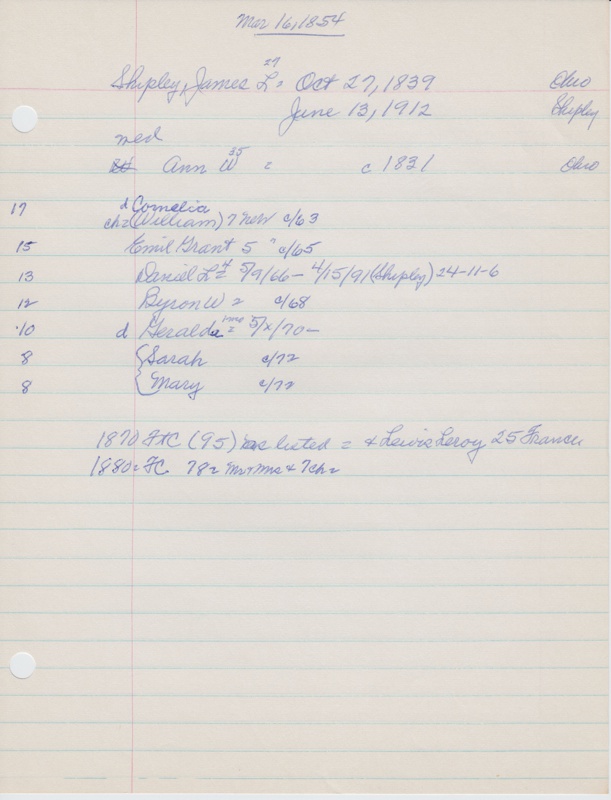 Mar 16, 1854
27
Shipley, James L = Oct 27, 1839 Ohio
June 13, 1912 Shipley
med
35
Ann W = c 1831 Ohio
17 d Cornelia
ch = (William) 7 New c/63
15 Emil Grant 5 " c/65
13 Daniel L 4 = 5/9/66 - 4/15/91 (Shipley) 24-11-6
12 Byron W 2 c/68
10 d Geralda 1mo = 5/x/70-
8 Sarah c/72
8 Mary c/72
1870 FtC (95) as listed = + Lewis Leroy 25 France
1880 = FC 78 = Mr + Mrs + 7 ch =